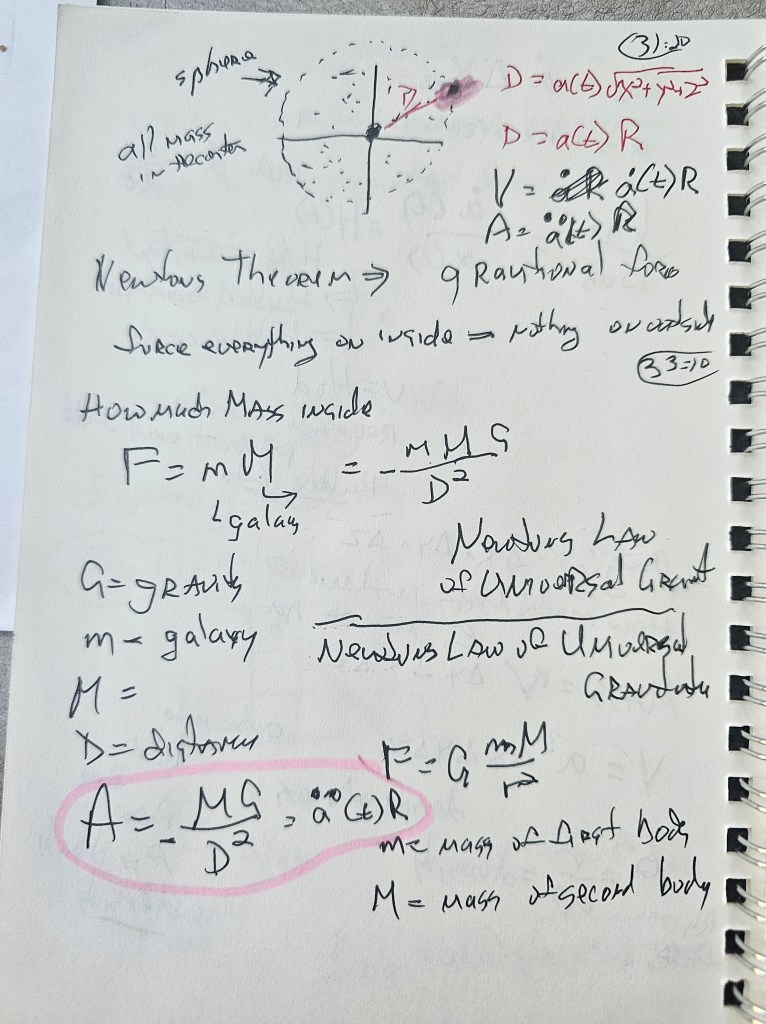 (31:20
sphere
D = a(t) √x²+y²+z²
D
all mass
in the center
D = a(t) R
V = ȧ(t) R
A = ä(t) R
Newtons Theorem ⇒ gravitional force
force everything on inside = nothing on outside
33:10
How much Mass inside
F = m M = - mMG/D²
galaxy
Newtons Law
of Universal Gravit
G = gravity
m = galaxy
Newtons Law of Universal
Gravitation
M =
D = distance
F = G mM/r²
A = - MG/D² = ä(t) R
m = mass of first body
M = mass of second body